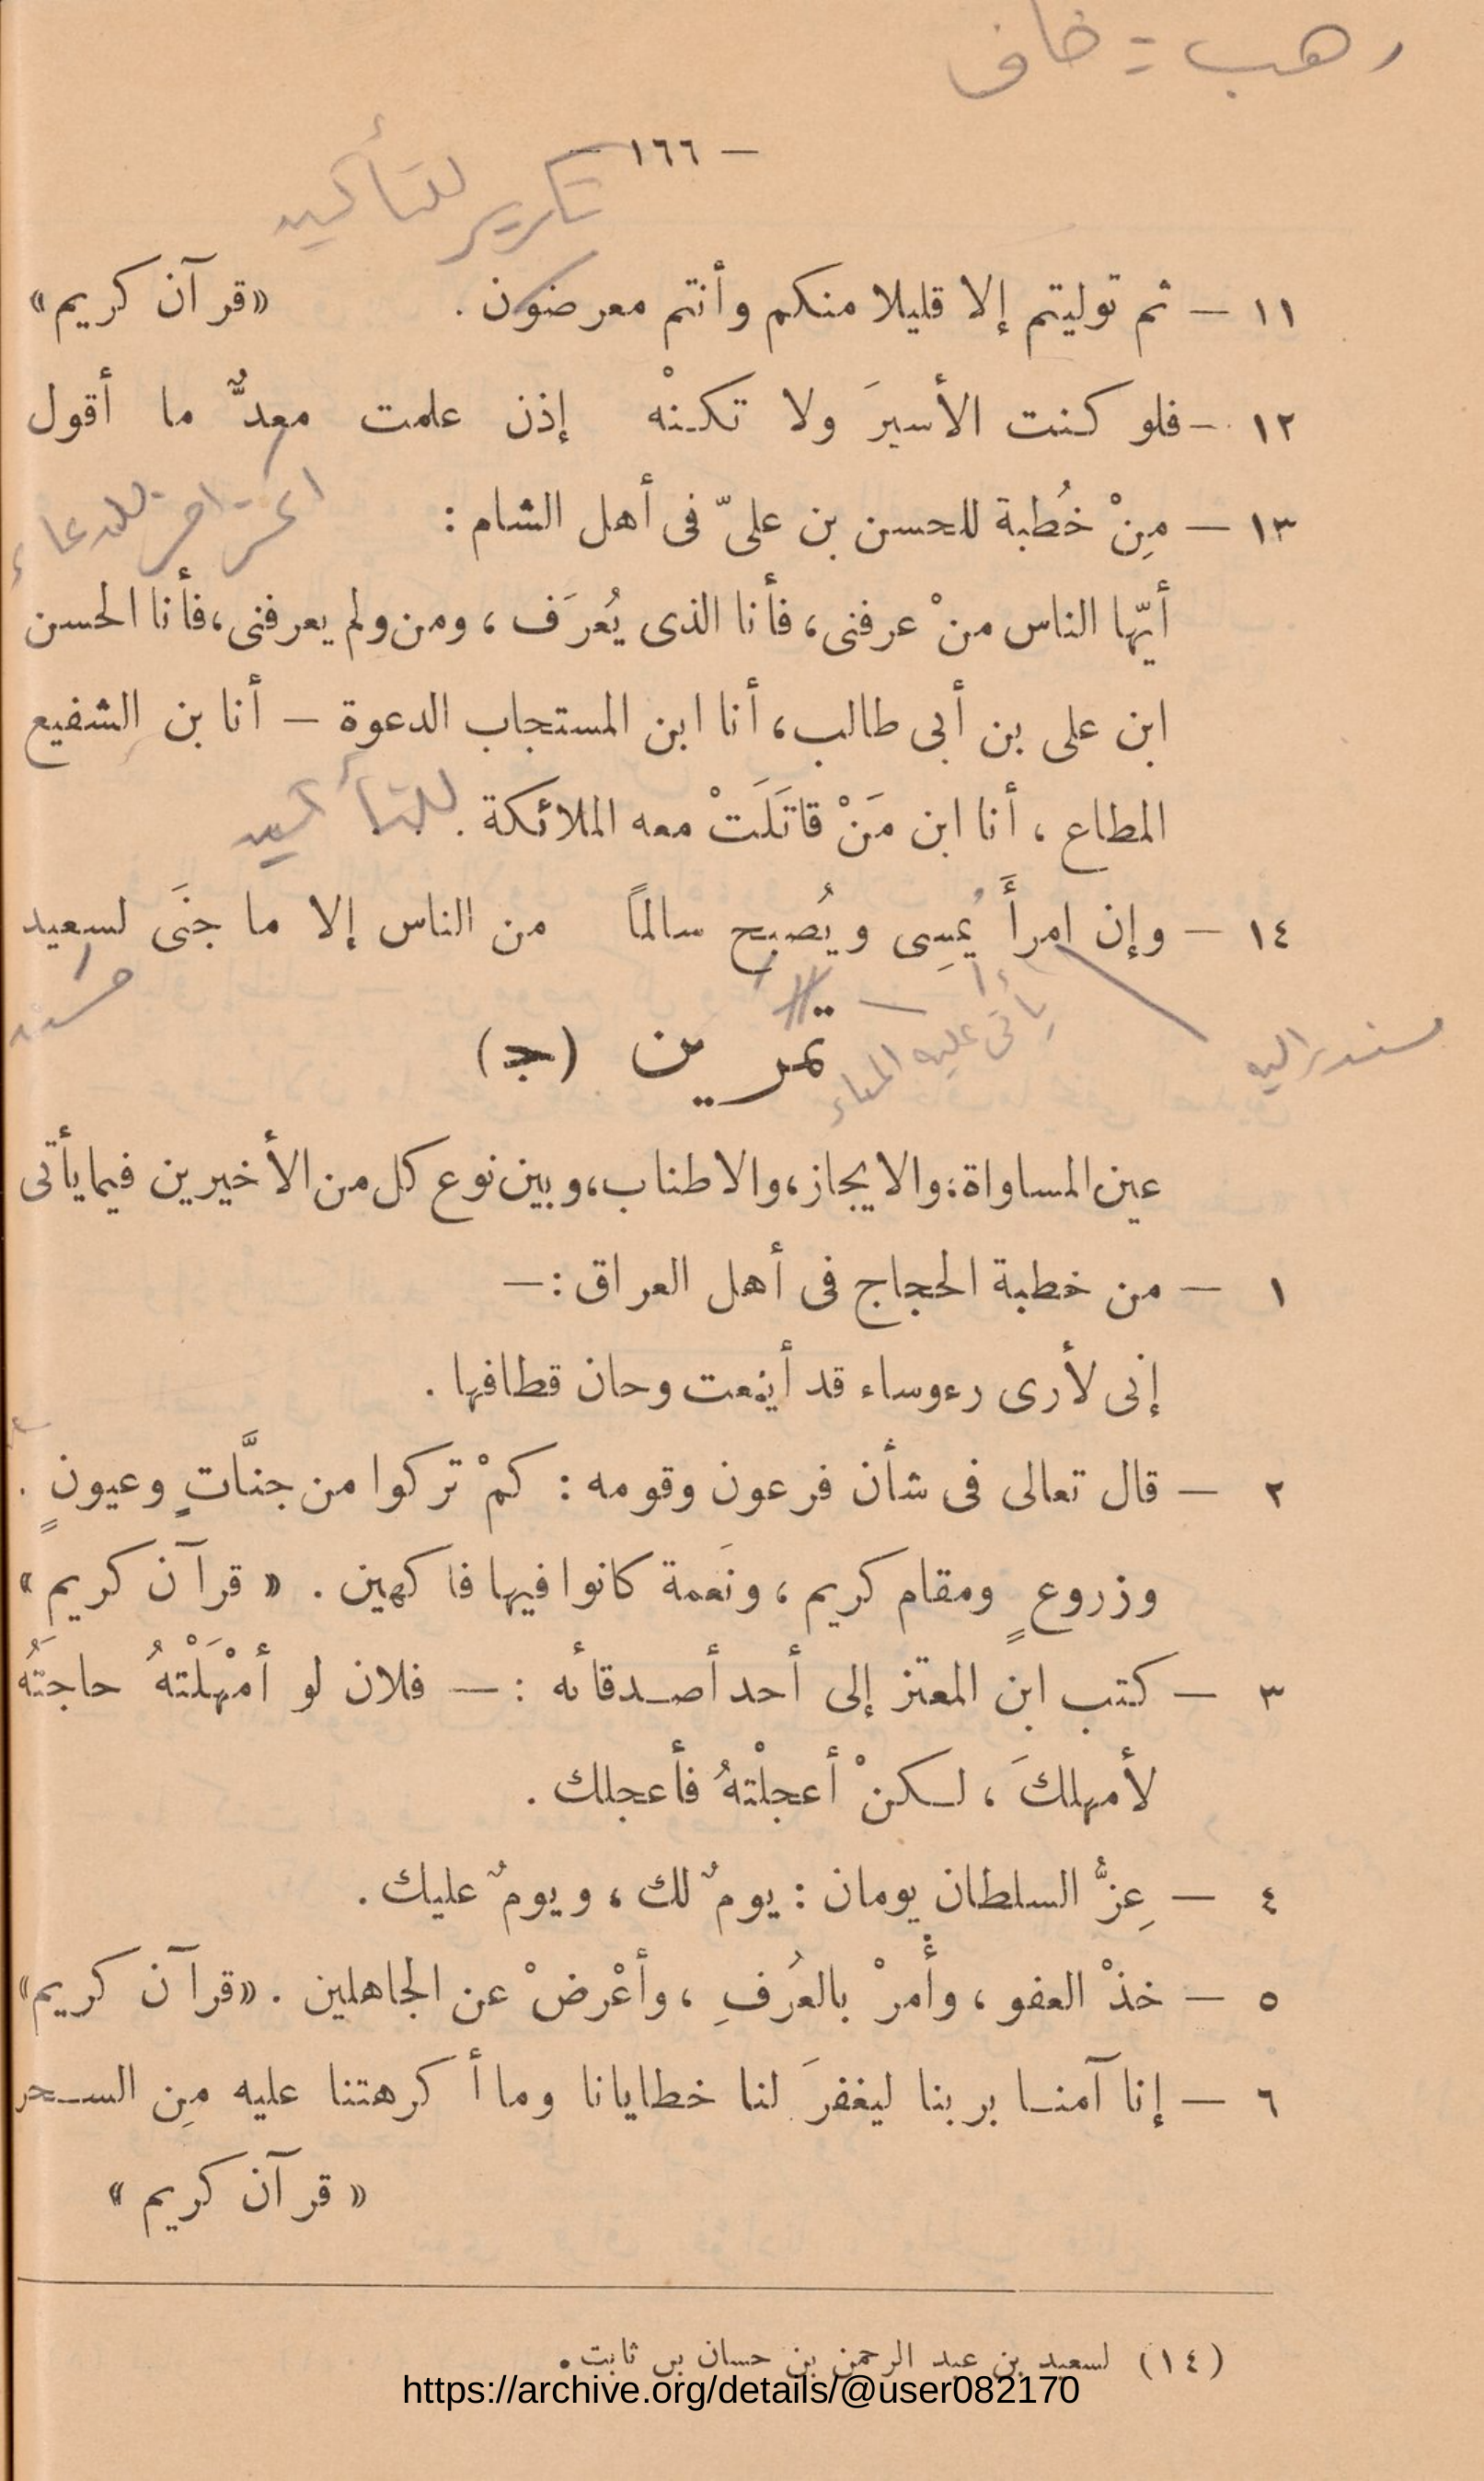 رهب = خاف
— ١٦٦ —
تكرير للتأكيد
١١ — ثم توليتم إلا قليلا منكم وأنتم معرضون . «قرآن كريم»
١٢ — فلو كنت الأسيرَ ولا تكنْه إذن علمت معدٌّ ما أقول
احتراس للدعاء
١٣ — مِنْ خُطبة للحسن بن علىّ فى أهل الشام :
أيّها الناس منْ عرفنى، فأنا الذى يُعرَف ، ومن ولم يعرفنى، فأنا الحسن
ابن على بن أبى طالب، أنا ابن المستجاب الدعوة — أنا بن الشفيع
المطاع ، أنا ابن مَنْ قاتَلَتْ معه الملائكة .
للتأكيد
١٤ — وإن امرأً يُمسِى ويُصبح سالماً من الناس إلا ما جنَى لسعيد
مسند إليه
يأتى عليه المساء
مسند
تمرين (ج)
عين المساواة، والايجاز، والاطناب، وبين نوع كل من الأخيرين فيما يأتى
١ — من خطبة الحجاج فى أهل العراق :—
إنى لأرى رءوساء قد أينعت وحان قطافها .
٢ — قال تعالى فى شأن فرعون وقومه : كمْ تركوا من جنَّاتٍ وعيونٍ .
وزروعٍ ومقام كريم ، ونَعمة كانوا فيها فاكهين . « قرآن كريم »
٣ — كتب ابن المعتز إلى أحد أصدقائه : — فلان لو أمْهَلْتهُ حاجتَهُ
لأمهلكَ ، لكنْ أعجلْتهُ فأعجلك .
٤ — عِزُّ السلطان يومان : يومٌ لك ، ويومٌ عليك .
٥ — خذْ العفو ، وأْمرْ بالعُرفِ ، وأعْرضْ عن الجاهلين . «قرآن كريم»
٦ — إنا آمنا بربنا ليغفرَ لنا خطايانا وما أكرهتنا عليه مِن السحر
« قرآن كريم »
(١٤) لسعيد بن عبد الرحمن بن حسان بن ثابت .
https://archive.org/details/@user082170